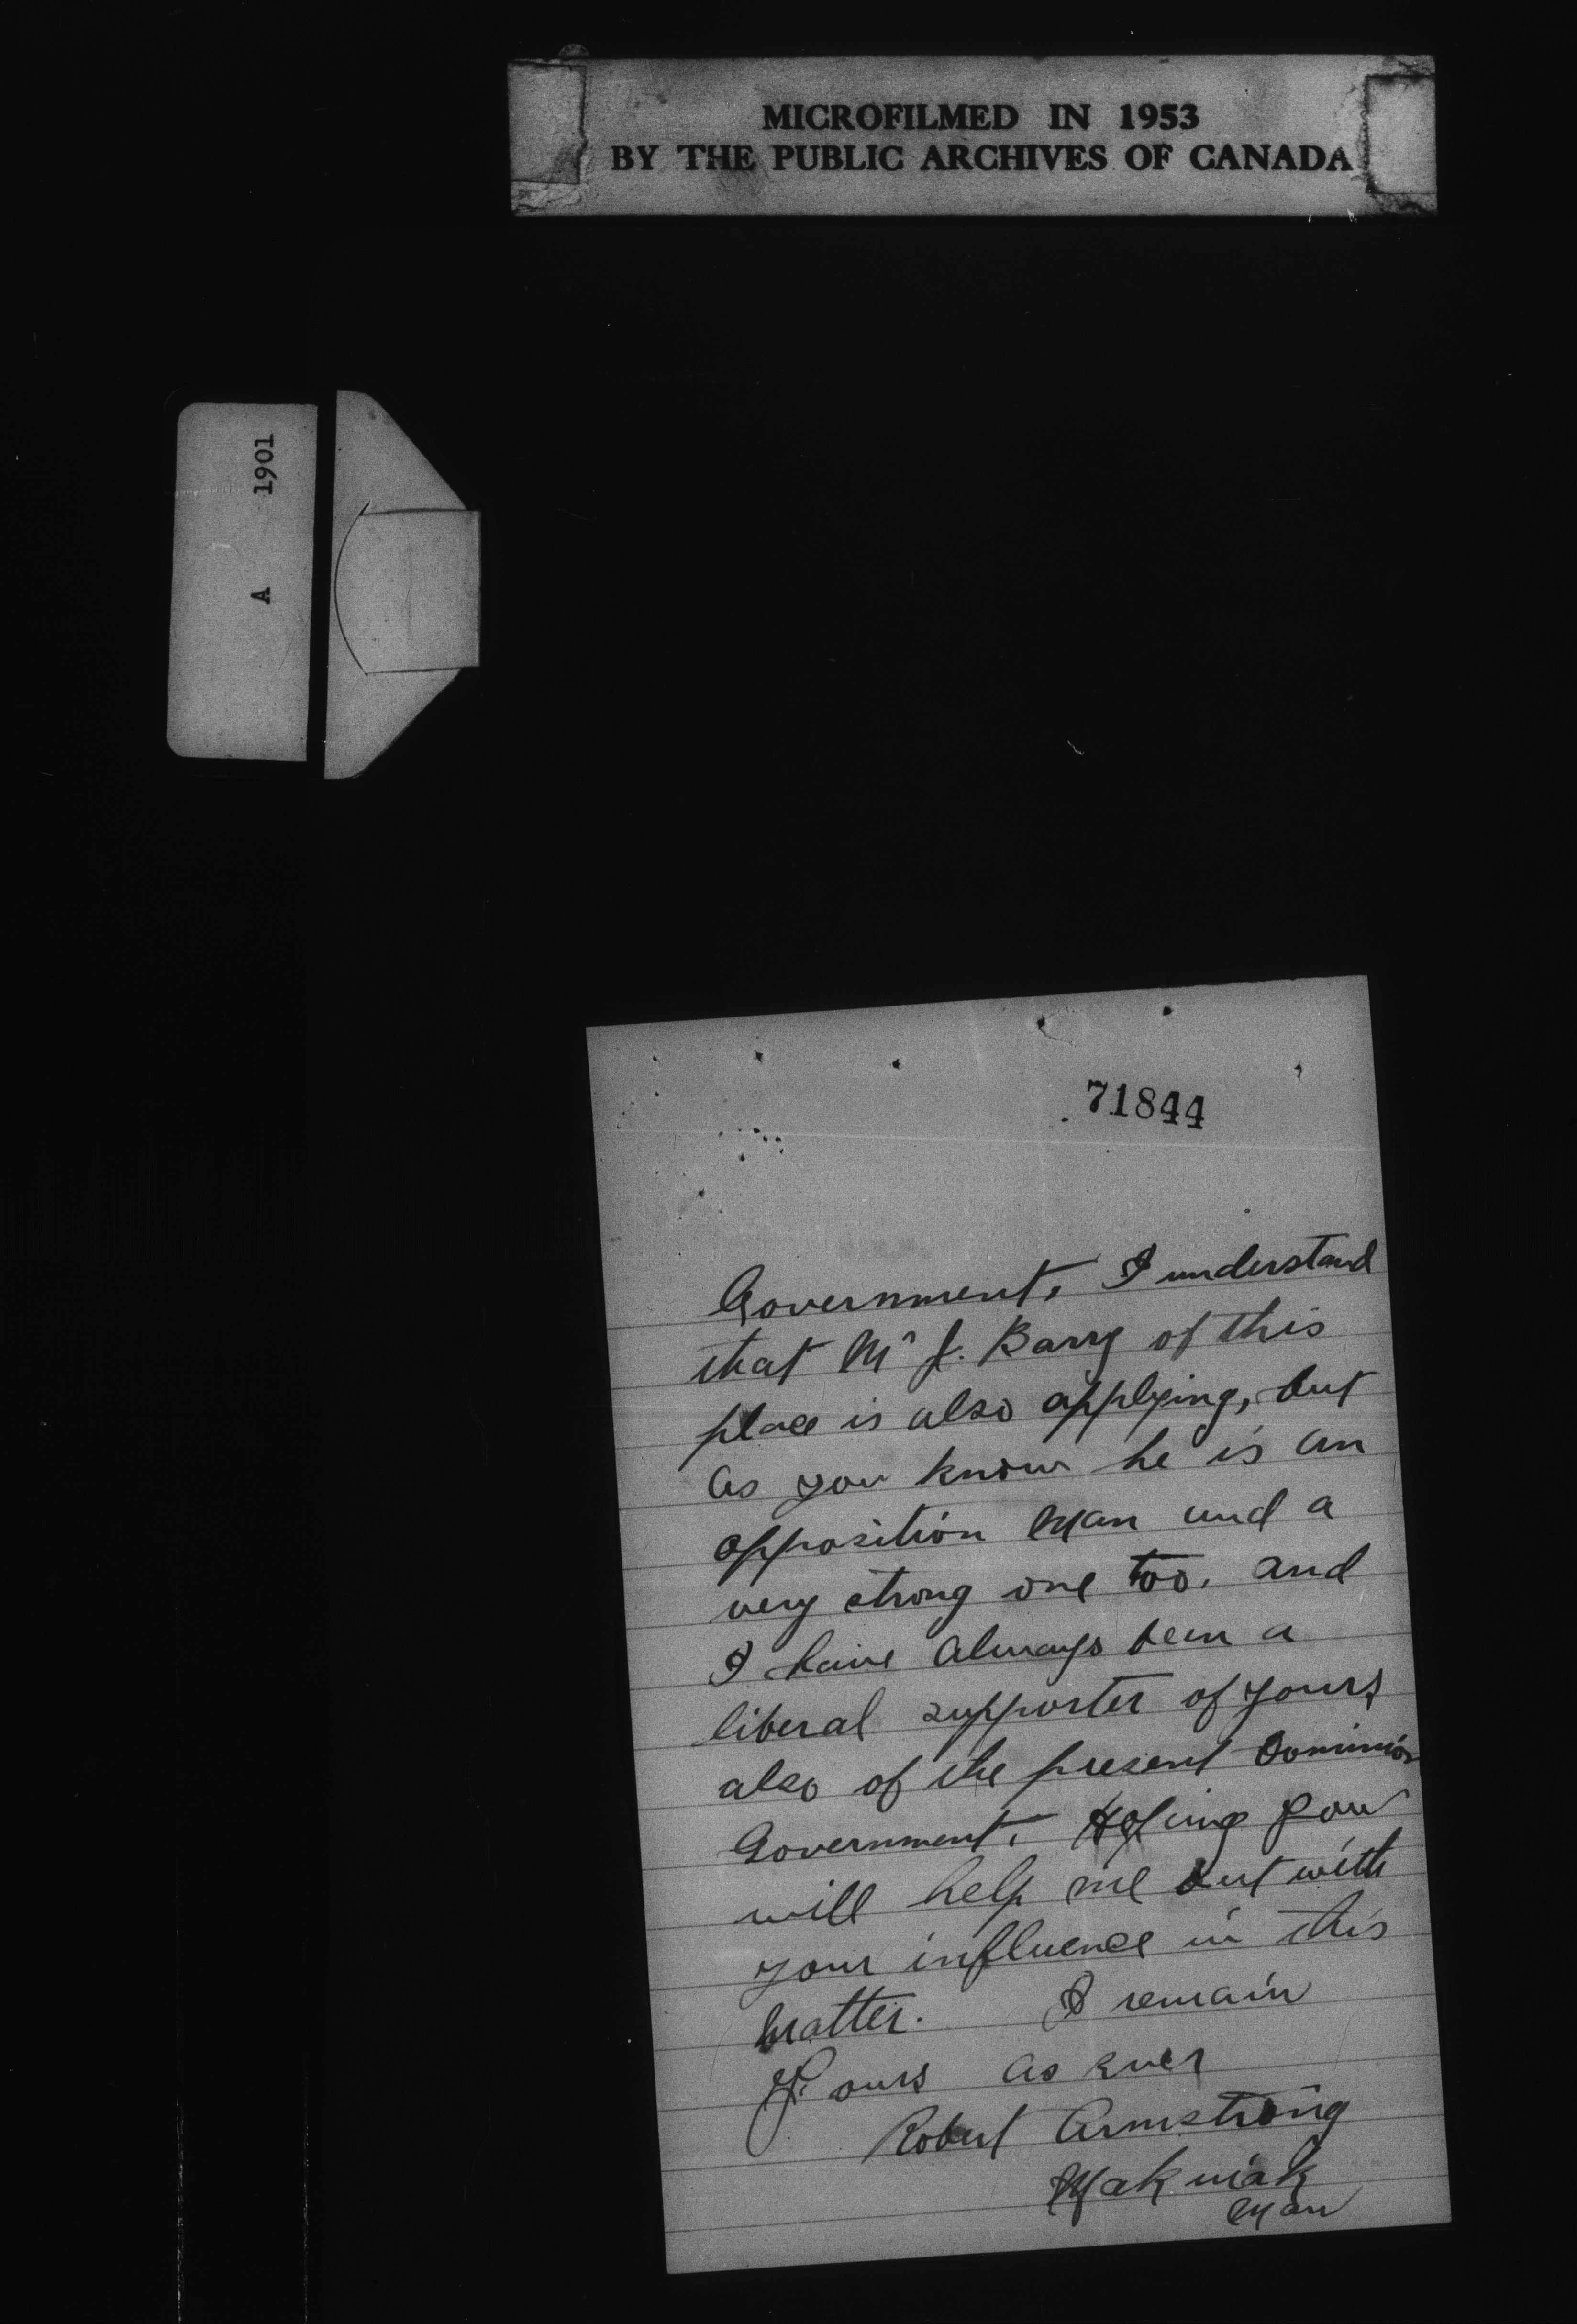 MICROFILMED IN 1953
BY THE PUBLIC ARCHIVES OF CANADA
A 1901
71844
Government. I understand
that Mr J. Barry of this
place is also applying, but
as you know he is an
opposition Man and a
very strong one too. and
I have always been a
liberal supporter of yours
also of the present Dominion
Government. Hoping you
will help me out with
your influence in this
matter. I remain
Yours as ever
Robert Armstrong
Makinak
Man